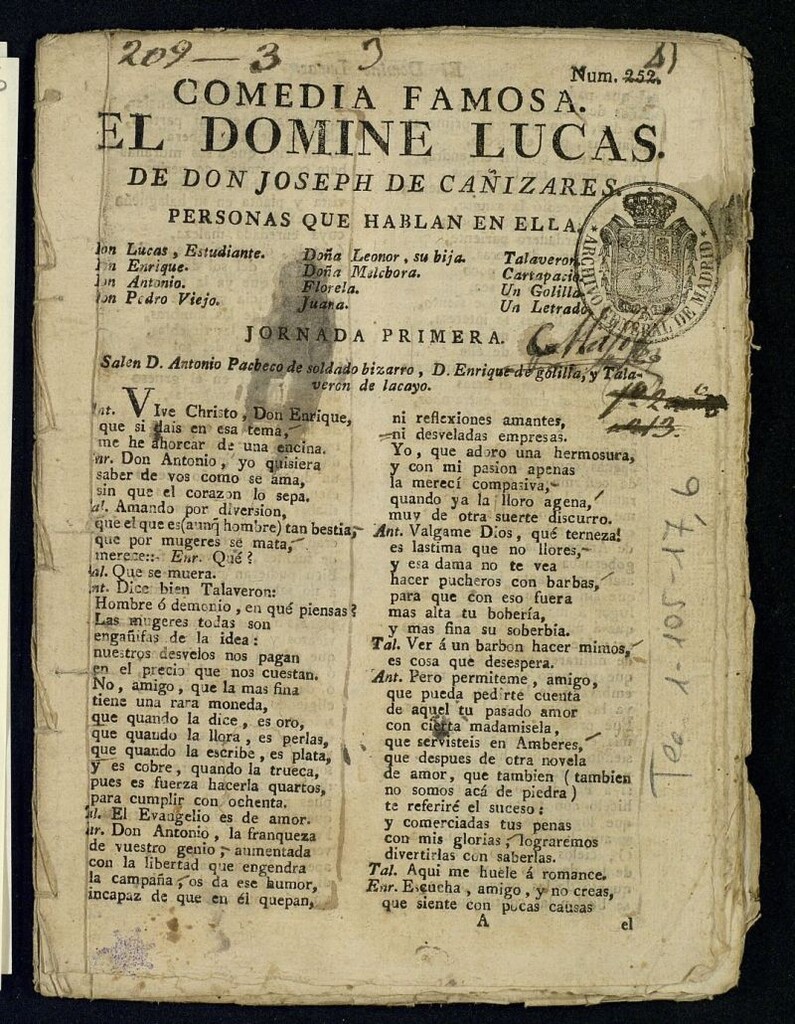 209-3 3
Num. 252.
COMEDIA FAMOSA.
EL DOMINE LUCAS.
DE DON JOSEPH DE CAÑIZARES.
PERSONAS QUE HABLAN EN ELLA.
Lucas, Estudiante.
Enrique.
Antonio.
Pedro Viejo.
Doña Leonor, su bija.
Doña Melchora.
Florela.
Juana.
Talaveron
Cartapacio
Un Golilla
Un Letrado
ARCHIVO GENERAL DE MADRID
JORNADA PRIMERA.
Salen D. Antonio Pacheco de soldado bizarro, D. Enrique de golilla, y Tala-
veron de lacayo.
nt. VIve Christo, Don Enrique,
que si dais en esa tema,
me he ahorcar de una encina.
nr. Don Antonio, yo quisiera
saber de vos como se ama,
sin que el corazon lo sepa.
al. Amando por diversion,
que el que es (aunq̃ hombre) tan bestia,
que por mugeres se mata,
merece::- Enr. Qué?
al. Que se muera.
nt. Dice bien Talaveron:
Hombre ó demonio, en qué piensas?
Las mugeres todas son
engañifas de la idea:
nuestros desvelos nos pagan
en el precio que nos cuestan.
No, amigo, que la mas fina
tiene una rara moneda,
que quando la dice, es oro,
que quando la llora, es perlas,
que quando la escribe, es plata,
y es cobre, quando la trueca,
pues es fuerza hacerla quartos,
para cumplir con ochenta.
al. El Evangelio es de amor.
nr. Don Antonio, la franqueza
de vuestro genio, aumentada
con la libertad que engendra
la campaña, os da ese humor,
incapaz de que en él quepan,
ni reflexiones amantes,
ni desveladas empresas.
Yo, que adoro una hermosura,
y con mi pasion apenas
la merecí compasiva,
quando ya la lloro agena,
muy de otra suerte discurro.
Ant. Valgame Dios, qué terneza!
es lastima que no llores,
y esa dama no te vea
hacer pucheros con barbas,
para que con eso fuera
mas alta tu bobería,
y mas fina su soberbia.
Tal. Ver á un barbon hacer mimos,
es cosa que desespera.
Ant. Pero permiteme, amigo,
que pueda pedirte cuenta
de aquel tu pasado amor
con cierta madamisela,
que servisteis en Amberes,
que despues de otra novela
de amor, que tambien (tambien
no somos acá de piedra)
te referiré el suceso:
y comerciadas tus penas
con mis glorias, lograremos
divertirlas con saberlas.
Tal. Aqui me huele á romance.
Enr. Escucha, amigo, y no creas,
que siente con pocas causas
A el
Tea 1-105-17, 9